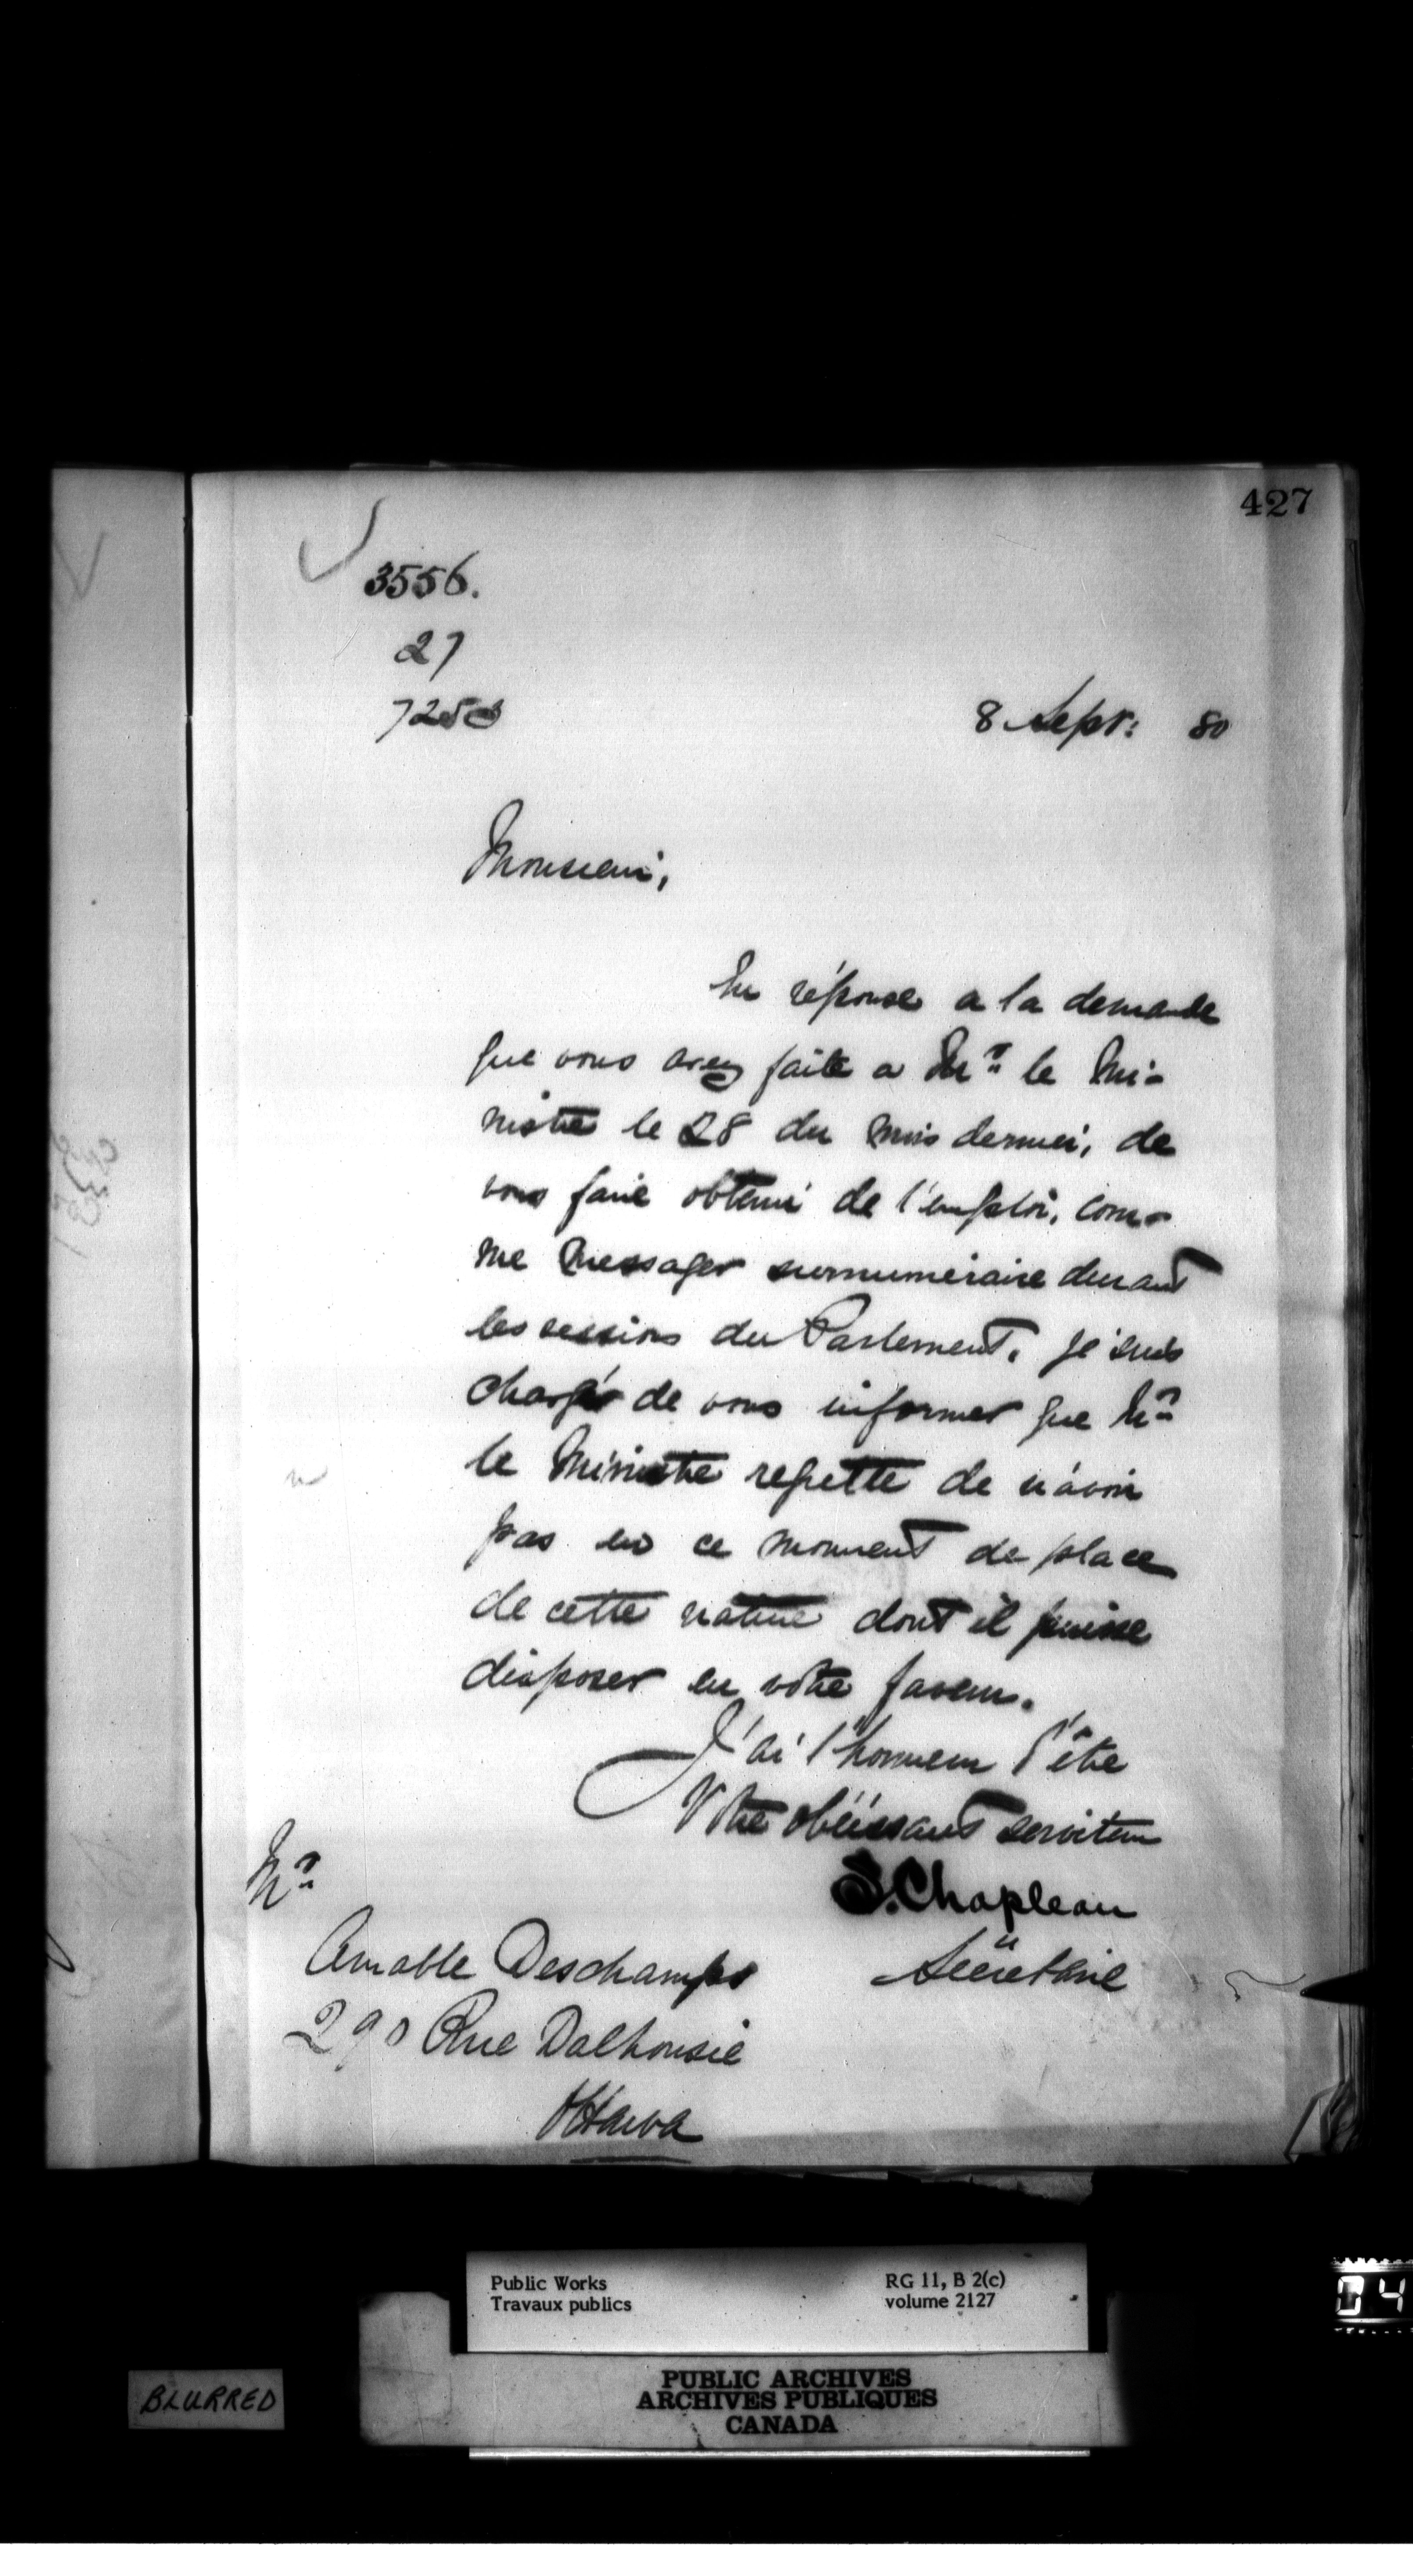 427
3556.
27
8 Sept: 80
Monsieur,
En réponse a la demande
que vous avez faite a Mr. le Mi-
nistre le 28 du mois dernier, de
vous faire obtenir de l'emploi, com-
me Messager surnumeraire durant
les sessions du Parlement. je suis
chargé de vous informer que Mr.
le Ministre regrette de n'avoir
pas en ce moment de place
de cette nature dont il puisse
disposer en votre faveur.
J'ai l'honneur d'être
Votre obéissant serviteur
S. Chapleau
Secretaire
Mr.
Amable Deschamps
290 Rue Dalhousie
Ottawa
Public Works
Travaux publics
RG 11, B 2(c)
volume 2127
PUBLIC ARCHIVES
ARCHIVES PUBLIQUES
CANADA
BLURRED
04